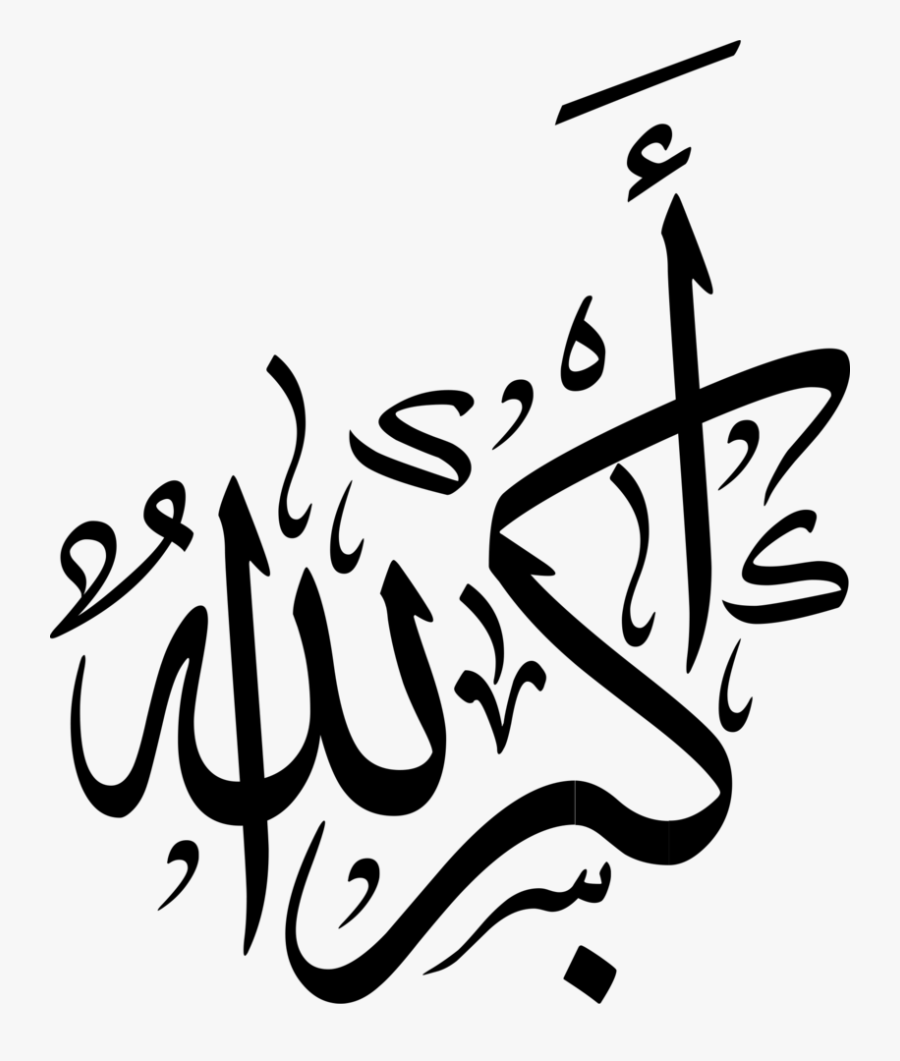 اللهُ أَكبر